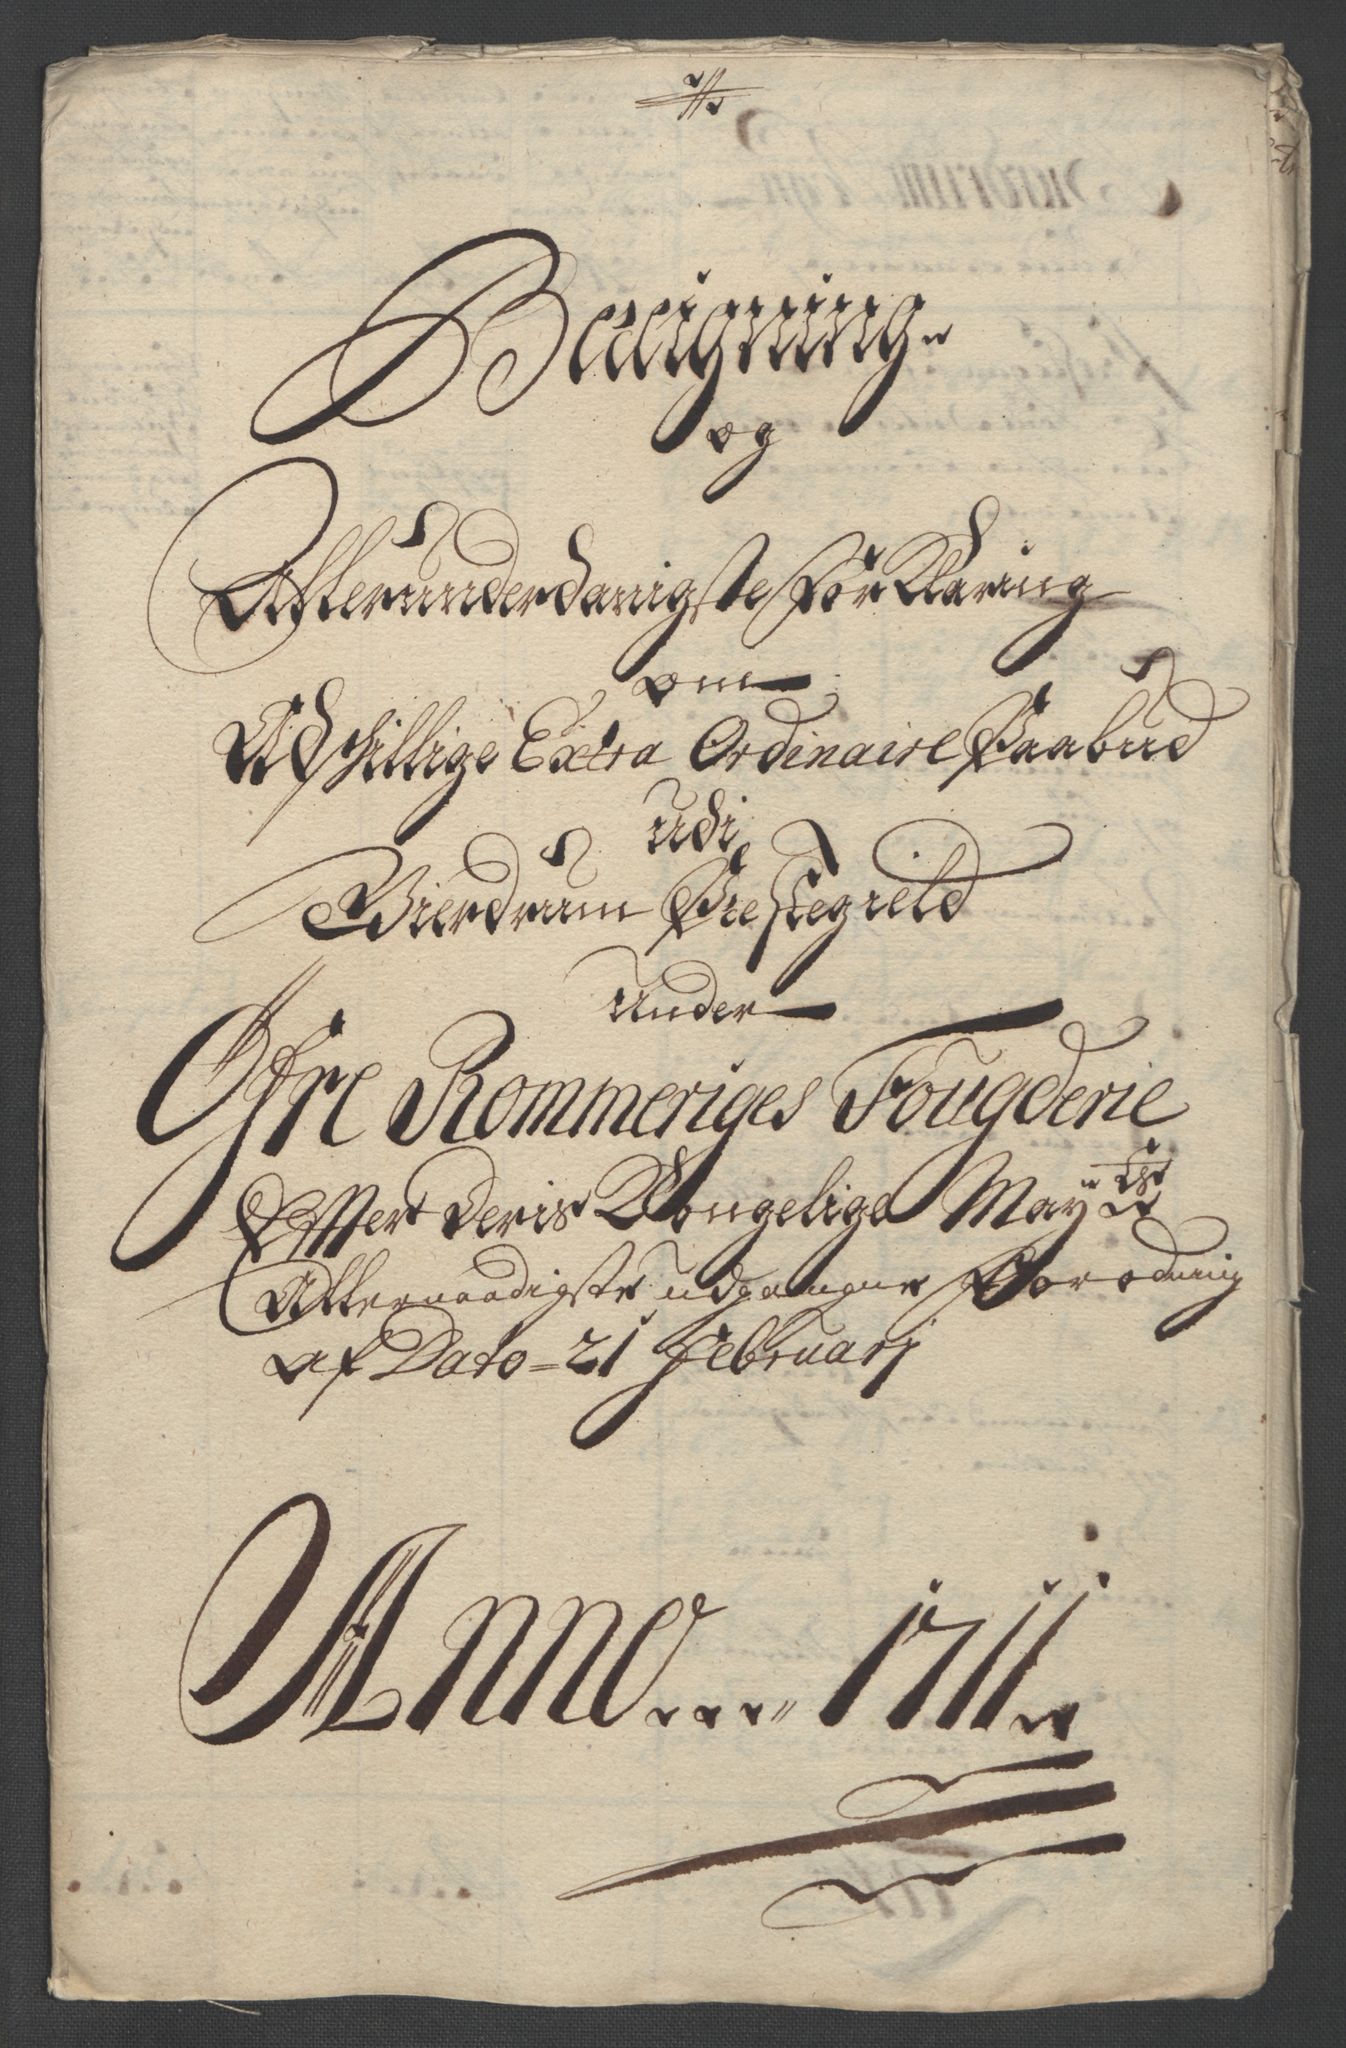 Beliigning
og
Allerunderdanigste forKlaring
om
Udschillige Extra Ordinaire Paabud
udi
Bierdrum Prestegield
Under
Øfre Rommeriges Fougderie
Effter Deris Kongelige May
Allernaadigste udgangne Forordning
af Dato 21 Februarj
Anno 1711